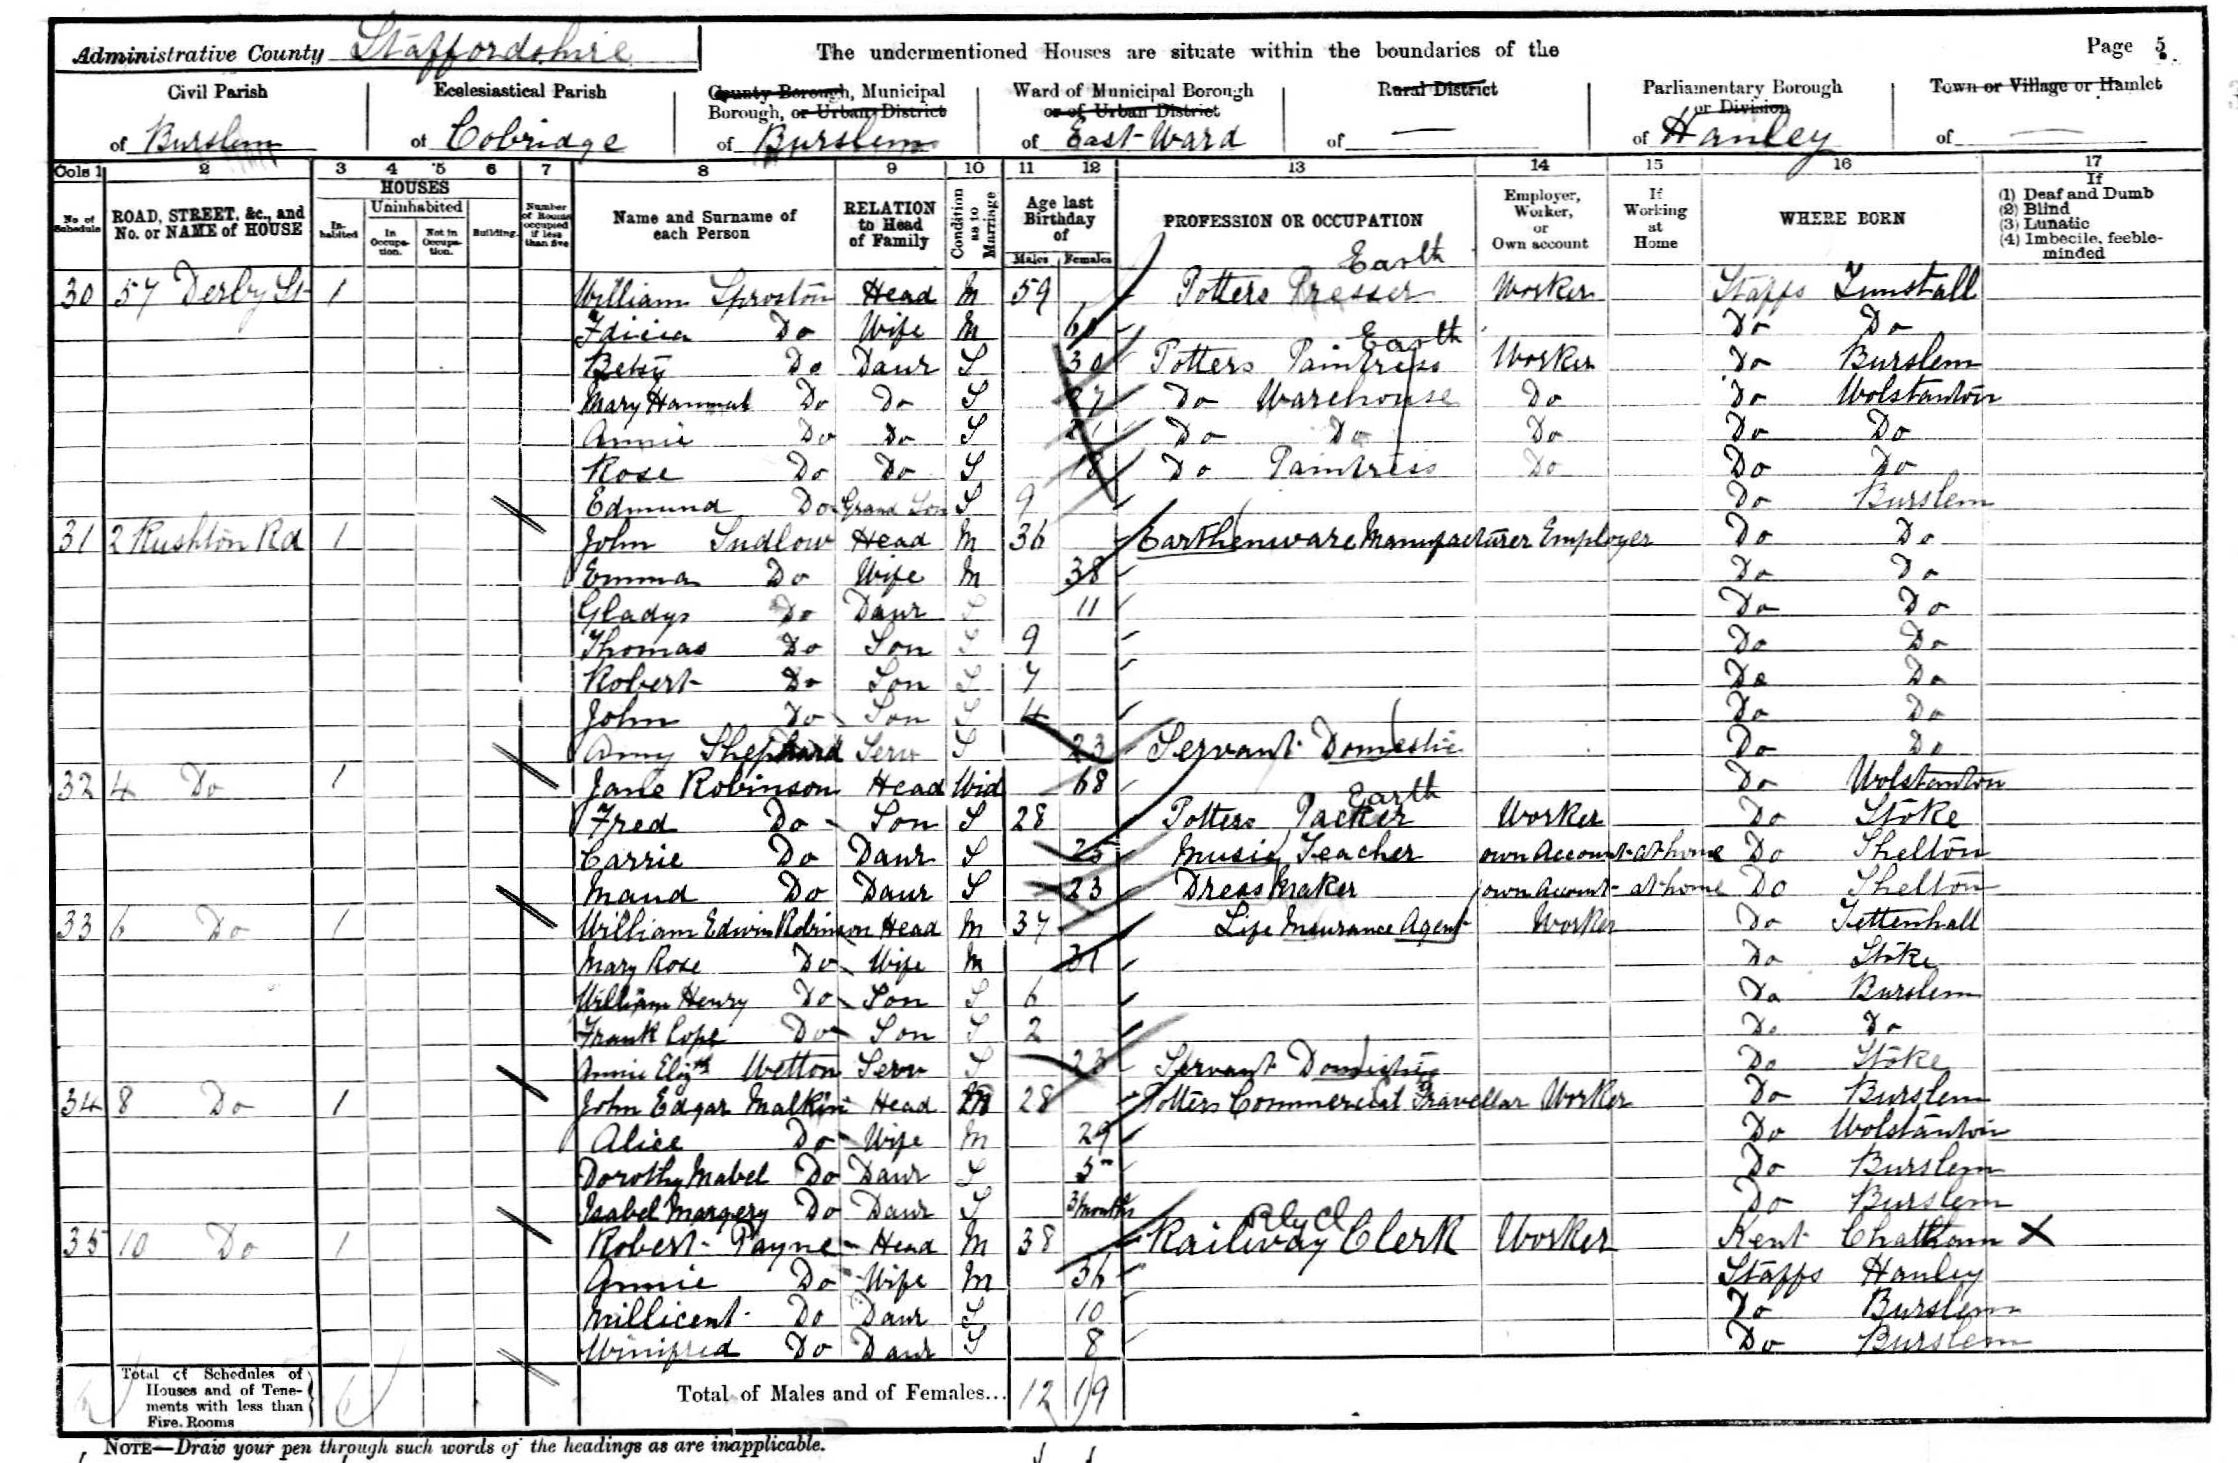 Administrative County Staffordshire The undermentioned Houses are situate within the boundaries of the Page 5
Civil Parish of Burslem
Ecclesiastical Parish of Cobridge
County Borough, Municipal Borough, or Urban District of Burslem
Ward of Municipal Borough or of Urban District of East Ward
Rural District of —
Parliamentary Borough or Division of Hanley
Town or Village or Hamlet of —
Cols 1 2 3 4 5 6 7 8 9 10 11 12 13 14 15 16 17
No of Schedule
ROAD, STREET, &c., and No. or NAME of HOUSE
HOUSES
Inhabited
Uninhabited
In Occupation.
Not in Occupation.
Building
Number of Rooms occupied if less than five
Name and Surname of each Person
RELATION to Head of Family
Condition as to Marriage
Age last Birthday of
Males Females
PROFESSION OR OCCUPATION
Employer, Worker, or Own account
If Working at Home
WHERE BORN
If
(1) Deaf and Dumb
(2) Blind
(3) Lunatic
(4) Imbecile, feeble-minded
Earth
30 57 Derby St 1 William Sproston Head M 59 Potters Presser Worker Staffs Tunstall
Do Wife M Do Do
Earth
Betsy Do Daur S 30 Potters Paintress Worker Do Burslem
Mary Hannah Do Do S 27 Do Warehouse Do Do Wolstanton
Annie Do Do S 21 Do Do Do Do Do
Rose Do Do S 18 Do Paintress Do Do Do
Edmund Do Grand Son S 9 Do Burslem
31 2 Rushton Rd 1 John Sudlow Head M 36 Earthenware Manufacturer Employer Do Do
Emma Do Wife M 38 Do Do
Gladys Do Daur S 11 Do Do
Thomas Do Son S 9 Do Do
Robert Do Son S 7 Do Do
John Do Son S 4 Do Do
Amy Shephard Serv S 23 Servant Domestic Do Do
32 4 Do 1 Jane Robinson Head Wid 68 Do Wolstanton
Earth
Fred Do Son S 28 Potters Packer Worker Do Stoke
Carrie Do Daur S 25 Music Teacher own Account at home Do Shelton
Maud Do Daur S 23 Dress Maker own Acount at home Do Shelton
33 6 Do 1 William Edwin Robinson Head M 37 Life Insurance Agent Worker Do Tettenhall
Mary Rose Do Wife M 31 Do Stoke
William Henry Do Son S 6 Do Burslem
Frank Cope Do Son S 2 Do Do
Annie Elizth Wetton Serv S 23 Servant Domestic Do Stoke
34 8 Do 1 John Edgar Malkin Head M 28 Potters Commercial Traveller Worker Do Burslem
Alice Do Wife M 29 Do Wolstanton
Dorothy Mabel Do Daur S 5 Do Burslem
Isabel Margery Do Daur S 3 months Do Burslem
Rly Cl
35 10 Do 1 Robert Payne Head M 38 Railway Clerk Worker Kent Chatham X
Annie Do Wife M 36 Staffs Hanley
Millicent Do Daur S 10 Do Burslem
Winifred Do Daur S 8 Do Burslem
Total of Schedules of Houses and of Tenements with less than Five Rooms 6 Total of Males and of Females... 12 19
NOTE—Draw your pen through such words of the headings as are inapplicable.